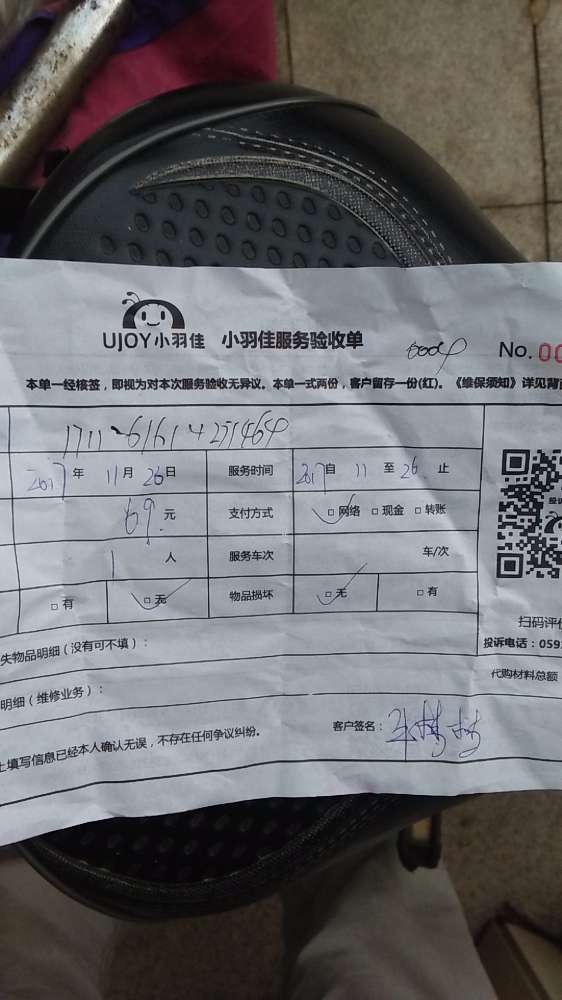 UJOY小羽佳 小羽佳服务验收单
No. 00
本单一经核签，即视为对本次服务验收无异议。本单一式两份，客户留存一份(红)。《维保须知》详见背
2017年 11月 26日 服务时间 2017自 11 至 26 止
69元 支付方式 □网络 □现金 □转账
1 人 服务车次 车/次
□有 □无 物品损坏 □无 □有
扫码评价
失物品明细（没有可不填）：
投诉电话：059
明细（维修业务）：
代购材料总额
上填写信息已经本人确认无误，不存在任何争议纠纷。
客户签名：